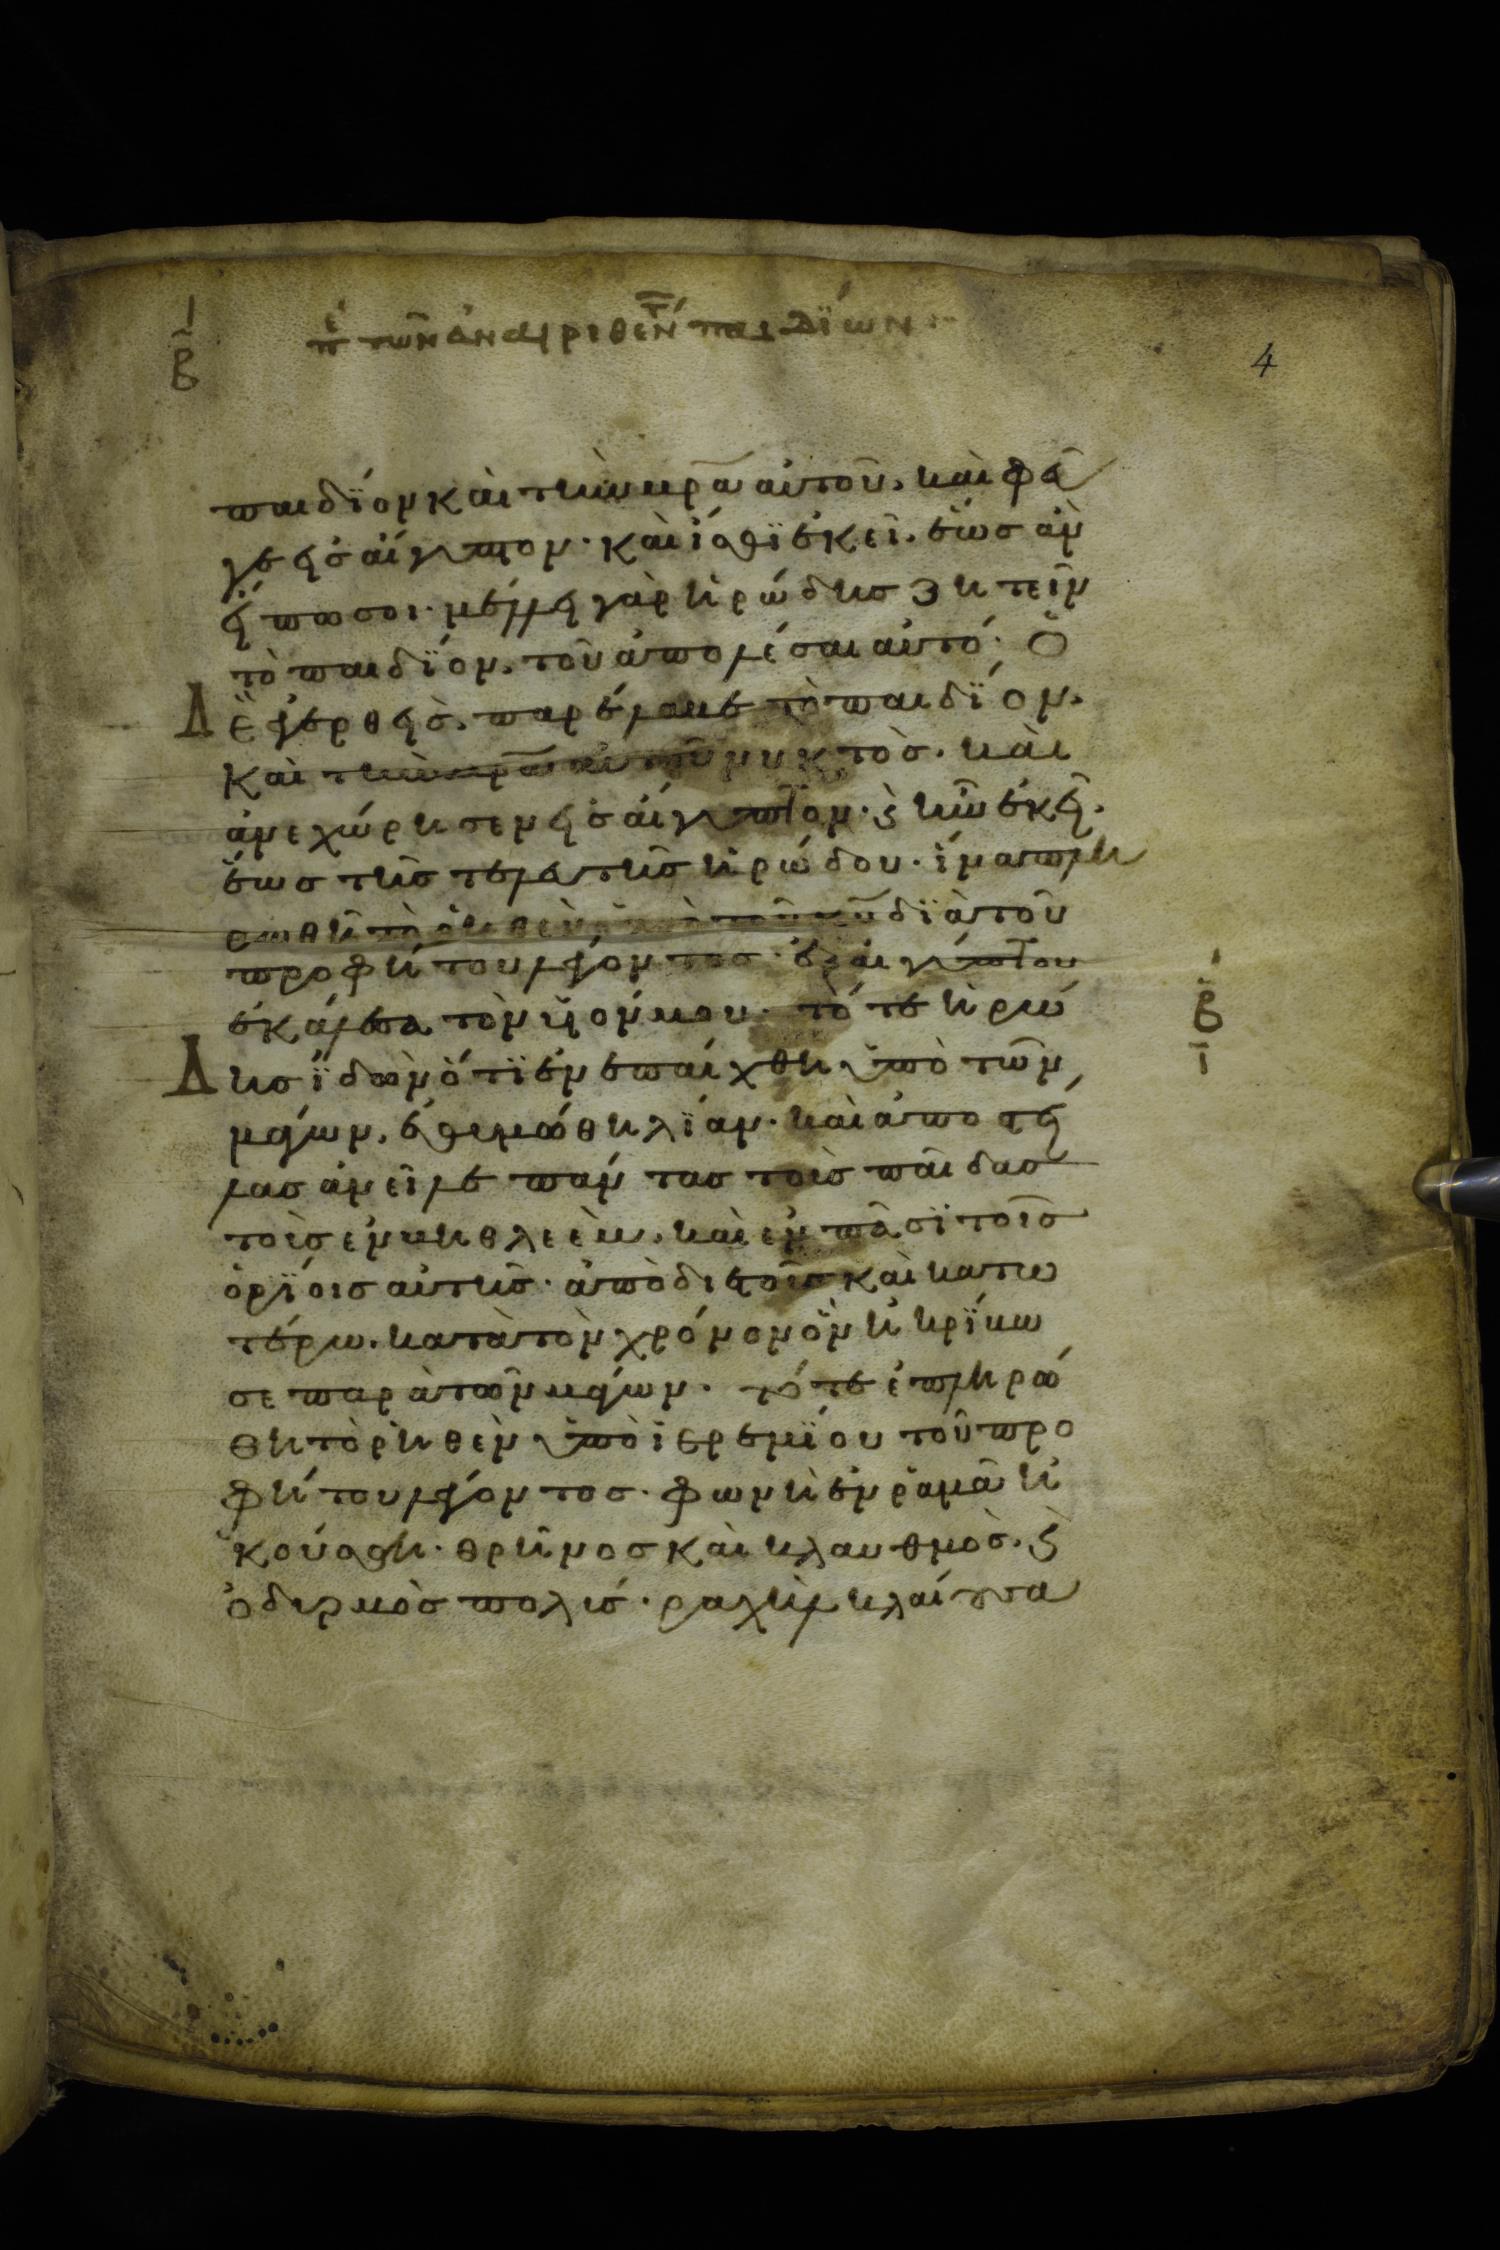 β
π̣ε τῶν ἀναιριθέντ παιδΐων
4
παιδΐον καὶ τὴν μρ̅α αὐτοῦ, καὶ φεῦ
γε εἰς αἴγυπτον· καὶ ἴσθϊ ἐκεῖ. ἕως ἂν
εἴπω σοι· μέλλει γὰρ ἡρώδης ζητεῖν
τὸ παιδΐον, τοῦ ἀπολέσαι αὐτό· Ὁ
Δ
Ε ἐγερθεὶς, παρέλαβε τὸ παιδΐον,
καὶ τὴν μρ̅α αὐτοῦ νυκτὸς. καὶ
ἀνεχώρησεν εἰς αἴγυπτον· ϗ ἦν ἐκεῖ.
ἕως τῆς τελευτῆς ἡρώδου· ἵνα πλη
ρωθῆ τὸ ῥηθὲν ὑπὸ τοῦ κῡ δϊὰ τοῦ
προφήτου λέγοντος· ἐξ αἰγύπτου
ἐκάλεσα τὸν υἱόν μου· τότε ἡρώ
β
ι
Δ
ης ἰδὼν ὅτϊ ἐνεπαίχθη ὑπὸ τῶν
μάγων, ἐθυμώθη λΐαν· καὶ ἀποστεί
λας ἀνεῖλε πάντας τοὺς παῖδας
τοὺς ἐν βηθλεὲμ, καὶ ἐν πᾶσϊ τοῖς
ὁρΐοις αὐτῆς· ἀπὸ διετοῦς καὶ κατω
τέρω, κατὰ τὸν χρόνον ὃν ἠκρΐβω
σε παρὰ τῶν μάγων· τότε ἐπληρώ
θη τὸ ῥηθὲν ὑπὸ ἱερεμΐου τοῦ προ
φήτου λέγοντος· φωνὴ ἐν ῥαμᾶ ἠ
κούσθη· θρῆνος καὶ κλαυθμὸς, ϗ
ὀδυρμὸς πολύς· ραχὴλ κλαίουσα